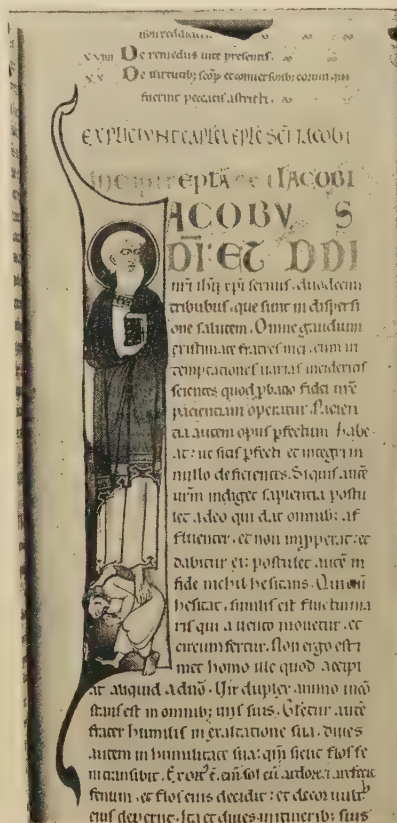 non reddatur
xxiiii De remediis uite presentis.
xx De uirtutib; scõꝝ et conuersionib; eorum qui
fuerint peccatis astricti.
EXPLICIUNT CAPLA EPLE SCI IACOBI
INCIPIT EPLA IACOBI
IACOBUS
DI: ET DDI
nr̃i ihũ xp̃i seruus. duodecim
tribubus. que sunt in dispersi
one salutem. Omne gaudium
existimate fratres mei. cum in
temptationes uarias incideritis
scientes quod ꝓbatio fidei ur̃e
pacientiam operatur. Pacien
tia autem opus ꝑfectum habe
at: ut sitis ꝑfecti et integri in
nullo deficientes. Siquis autẽ
ur̃m indiget sapientia postu
let a deo qui dat omnib; af
fluenter. et non inꝓperat: et
dabitur ei: postulet autẽ in
fide nichil hesitans. Qui eni
hesitat. similis est fluctui ma
ris qui a uento mouetur. et
circumfertur. Non ergo esti
met homo ille quod accipi
at aliquid a dño. Uir duplex animo incõ
stans est in omnib; uiis suis. Glietur autẽ
frater humilis in exaltatione sua. diues
autem in humilitate sua: qm̃ sicut flos fe
ni transibit. Exort' ẽ. eni sol cũ ardore. et arefecit
fenum. et flos eius decidit: et decor uult'
eius deperiit. Ita et diues in itinerib; suis